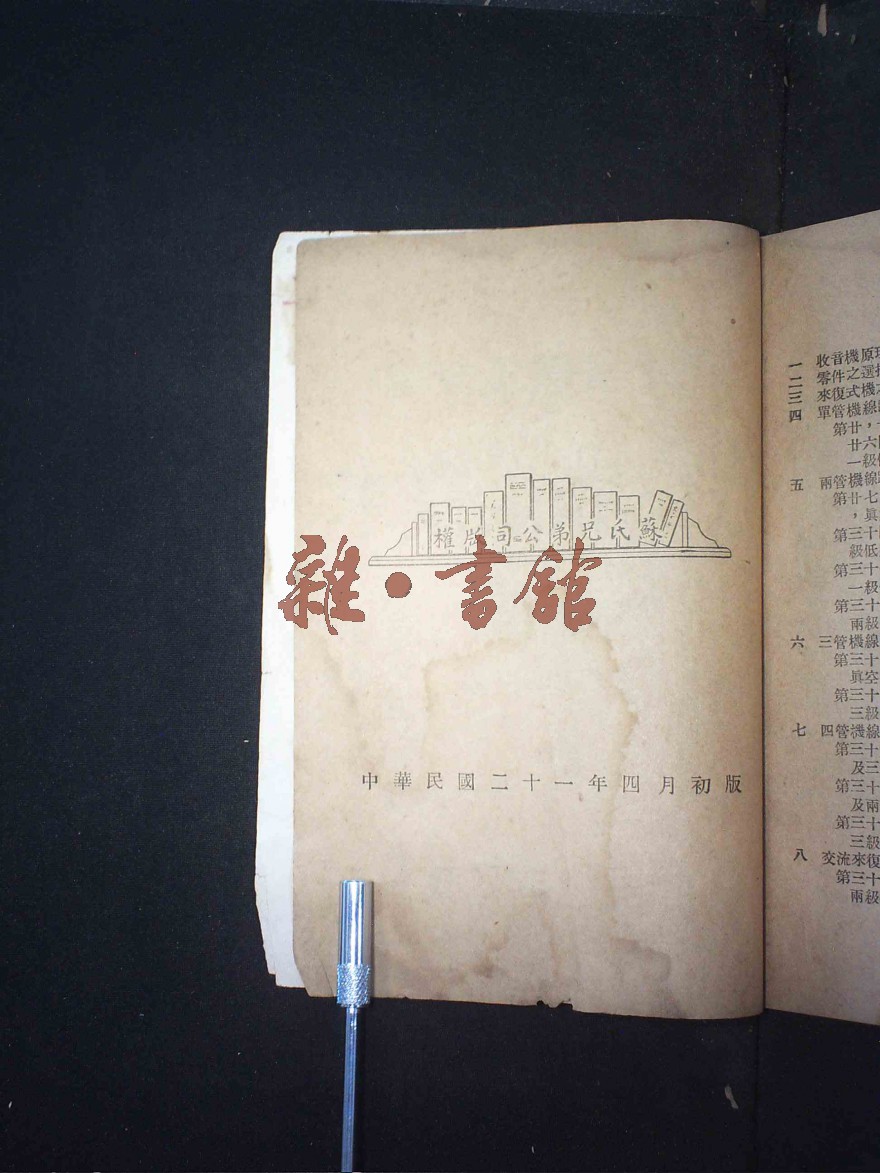 蘇氏兄弟公司版權
雜·書館
中華民國二十一年四月初版
一 收音機原理
二 零件之選擇
三 來復式機
四 單管機線
第廿，
廿六
一級
五 兩管機線
第廿七
，真
第三十
級低
第三十
一級
第三十
兩級
六 三管機線
第三十
眞空
第三十
三級
七 四管機線
第三十
及三
第三十
及兩
第三十
三級
八 交流來復
第三十
兩級